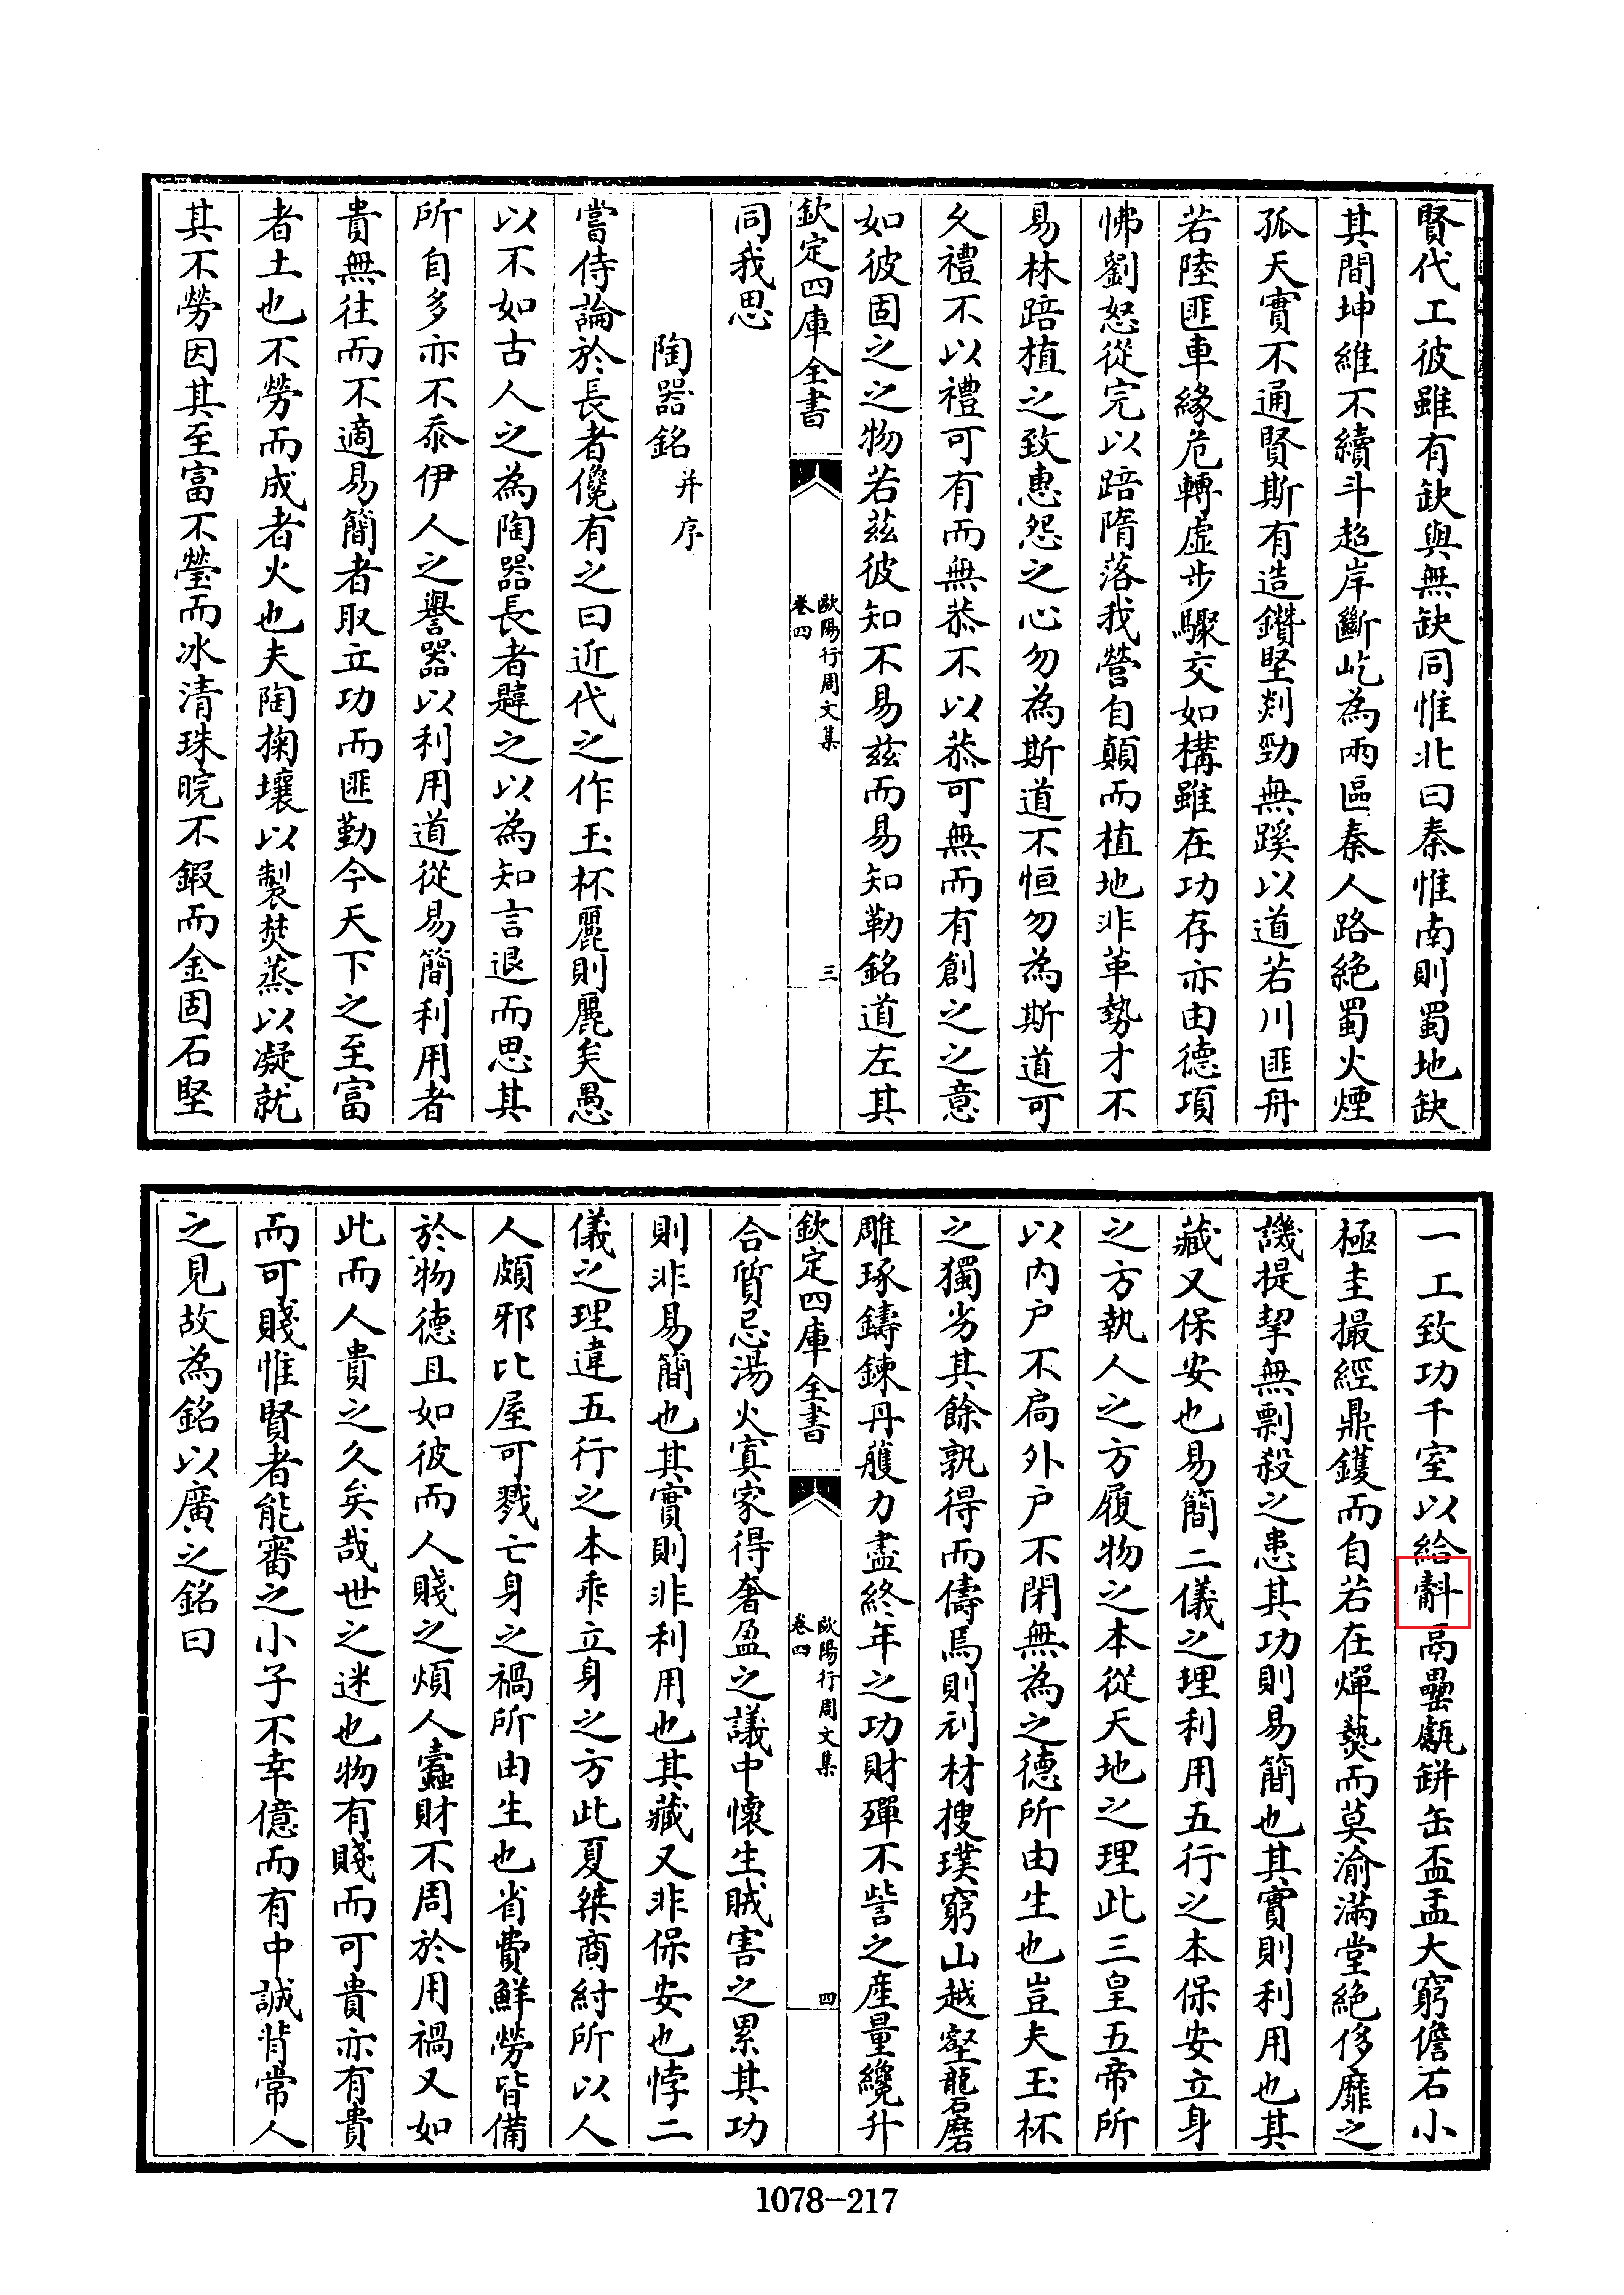 賢代工彼雖有缺與無缺同惟北曰秦惟南則蜀地缺
其間坤維不續斗超岸斷屹為兩區秦人路絶蜀火煙
孤天實不通賢斯有造鑽堅剡勁無蹊以道若川匪舟
若陸匪車緣危轉虛步驟交如構雖在功存亦由德項
怫劉怒從完以踣隋落我營自顛而植地非革勢才不
易林踣植之致惠怨之心勿為斯道不恒勿為斯道可
久禮不以禮可有而無恭不以恭可無而有創之之意
如彼固之之物若茲彼知不易茲而易知勒銘道左其
欽定四庫全書
歐陽行周文集
卷四
三
同我思
陶器銘并序
嘗侍論於長者儳有之曰近代之作玉杯麗則麗矣愚
以不如古人之為陶器長者韙之以為知言退而思其
所自多亦不忝伊人之譽器以利用道從易簡利用者
貴無往而不適易簡者取立功而匪勤今天下之至富
者土也不勞而成者火也夫陶掬壤以製焚蒸以凝就
其不勞因其至富不瑩而冰清珠晥不鍜而金固石堅
一工致功千室以給鬲罍甌缾缶盃盂大窮儋石小
極圭撮經鼎鑊而自若在燀爇而莫渝滿堂絶侈靡之
譏提挈無剽殺之患其功則易簡也其實則利用也其
藏又保安也易簡二儀之理利用五行之本保安立身
之方執人之方履物之本從天地之理此三皇五帝所
以内户不扃外户不閉無為之德所由生也豈夫玉杯
之獨劣其餘孰得而儔焉則刋材搜璞窮山越壑礱磨
雕琢鑄鍊丹雘力盡終年之功財殫不訾之産量纔升
欽定四庫全書
歐陽行周文集
卷四
四
合質忌湯火寘家得奢盈之議中懷生賊害之累其功
則非易簡也其實則非利用也其藏又非保安也悖二
儀之理違五行之本乖立身之方此夏桀商紂所以人
人頗邪比屋可戮亡身之禍所由生也省費鮮勞皆備
於物德且如彼而人賤之煩人蠹財不周於用禍又如
此而人貴之久矣哉世之迷也物有賤而可貴亦有貴
而可賤惟賢者能審之小子不幸億而有中誠背常人
之見故為銘以廣之銘曰
1078-217